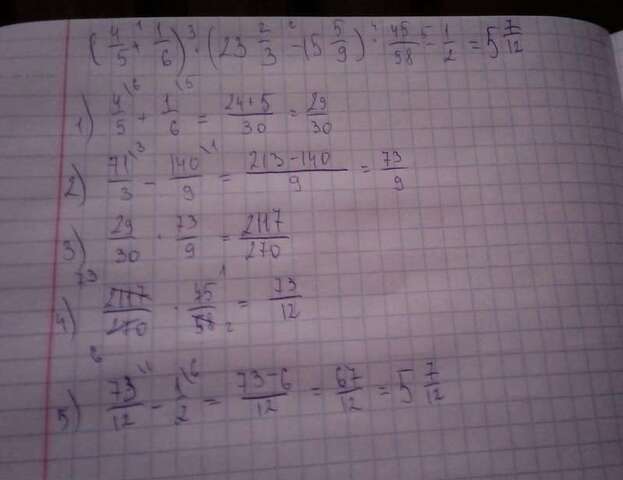 (4/5 + 1/6) · (23 2/3 - 15 5/9) · 45/58 - 1/2 = 5 7/12
1) 4/5 + 1/6 = 24+5/30 = 29/30
2) 71/3 - 140/9 = 213-140/9 = 73/9
3) 29/30 · 73/9 = 2117/270
4) 2117/270 · 45/58 = 73/12
5) 73/12 - 1/2 = 73-6/12 = 67/12 = 5 7/12